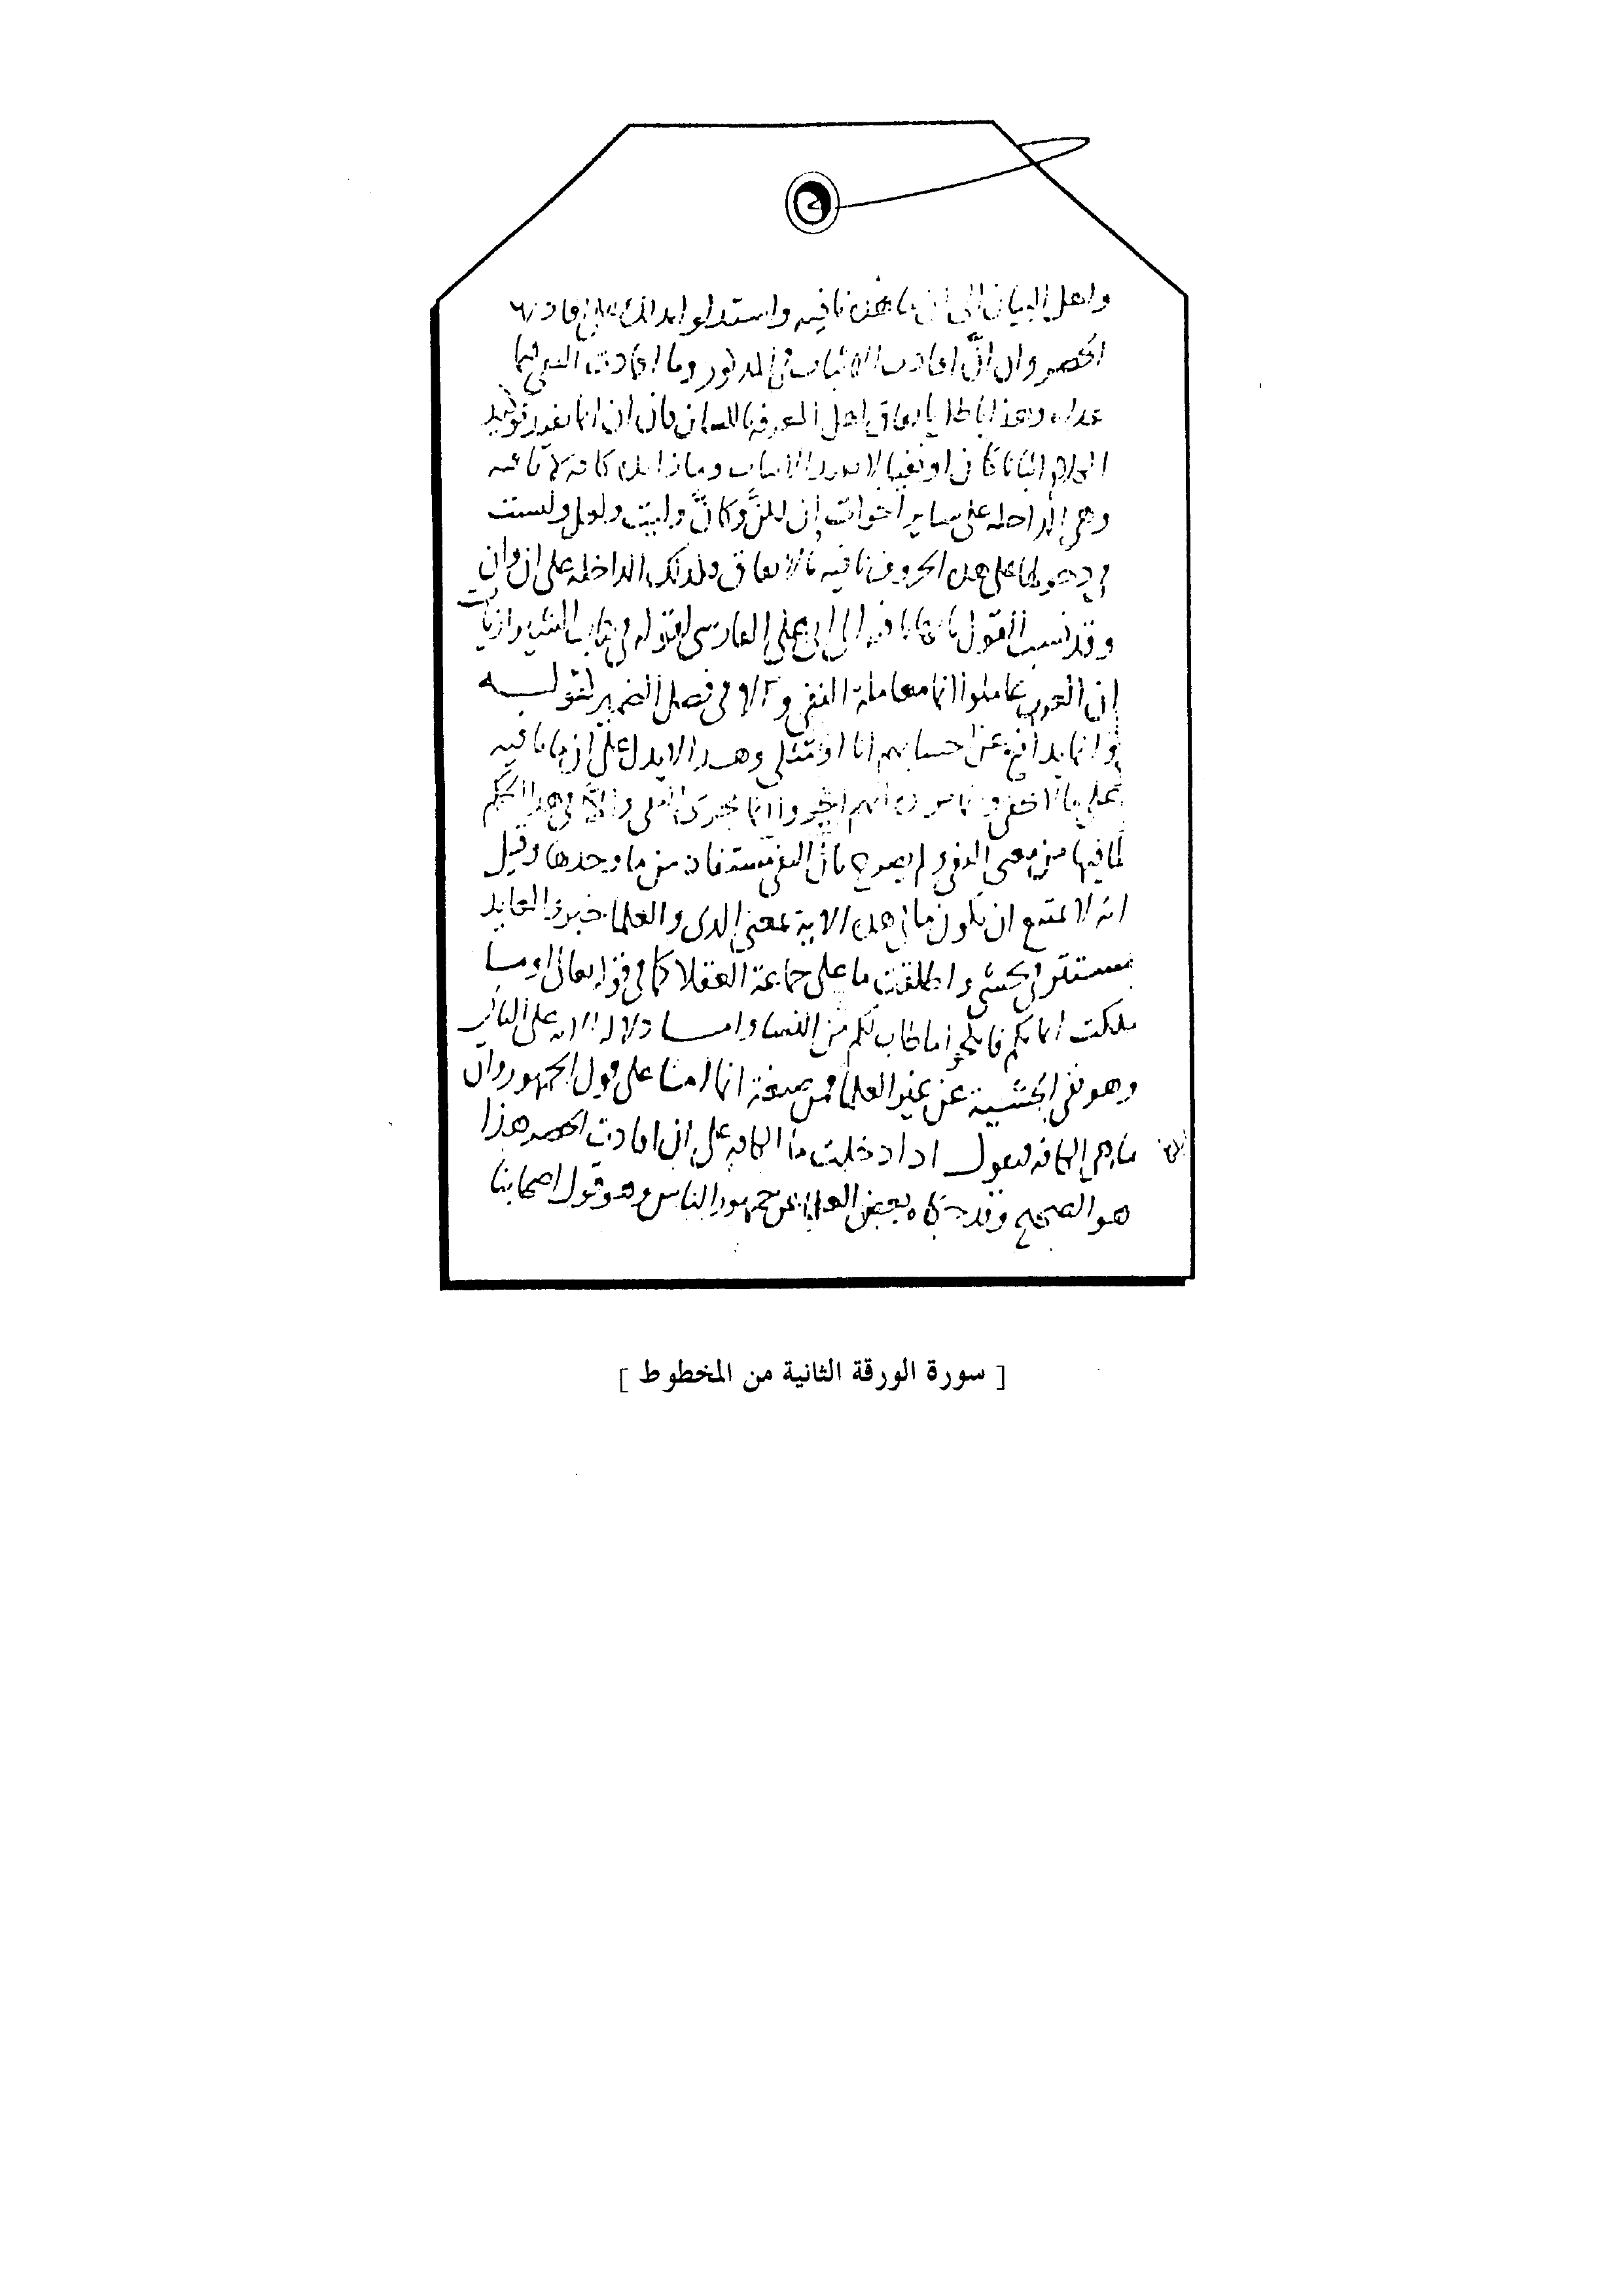 واهل البيان الى ان ما هذه نافيه واستدلوا بذلك على افادتها
الحصر وان انّ افادت الاثبات في المذكور وما افادت النفي فيما
عداه وهذا باطل باتفاق اهل المعرفة باللسان فان ان انما تفيد توكيد
الكلام اثباتا كان او نفيا لا تفيد الاثبات وما زايده كافة لا نافيه
وهي الداخله على ساير اخوات ان لكنّ وكانّ وليت ولعل وليست
في دخولها على هذه الحروف نافيه بالاتفاق وكذلك الداخله على ان وان
وقد نسب القول بانها نافيه الى ابي علي الفارسي لقوله في كتاب الشيرازيات
ان العرب عاملوا انما معاملة النفي والا في فصل الضمير لقوله
وانما يدافع عن احسابهم انا او مثلي وهذا لا يدل على ان ما نافيه
على ما لا يخفى وانما مراده انهم اجروا انما مجرى النفي والا في هذا الحكم
لما فيها من معنى النفي ولم يصرح بان النفي مستفاد من ما وحدها وقيل
انه لا يمتنع ان يكون ما في هذه الاية بمعنى الذي والعلما خبر والعايد
مستتر في يخشى واطلقت ما على جماعة العقلا كما في قوله تعالى او ما
ملكت ايمانكم فانكحوا ما طاب لكم من النسا واما دلالة الاية على الثاني
وهو نفي الخشية عن غير العلما فمن صيغة انما اما على قول الجمهور وان
ما هي الكافه فنقول اذا دخلت ما الكافه على ان افادت الحصر هذا
هو الصحيح وقد حكاه بعض العلما عن جمهور الناس وهو قول اصحابنا
[ سورة الورقة الثانية من المخطوط ]